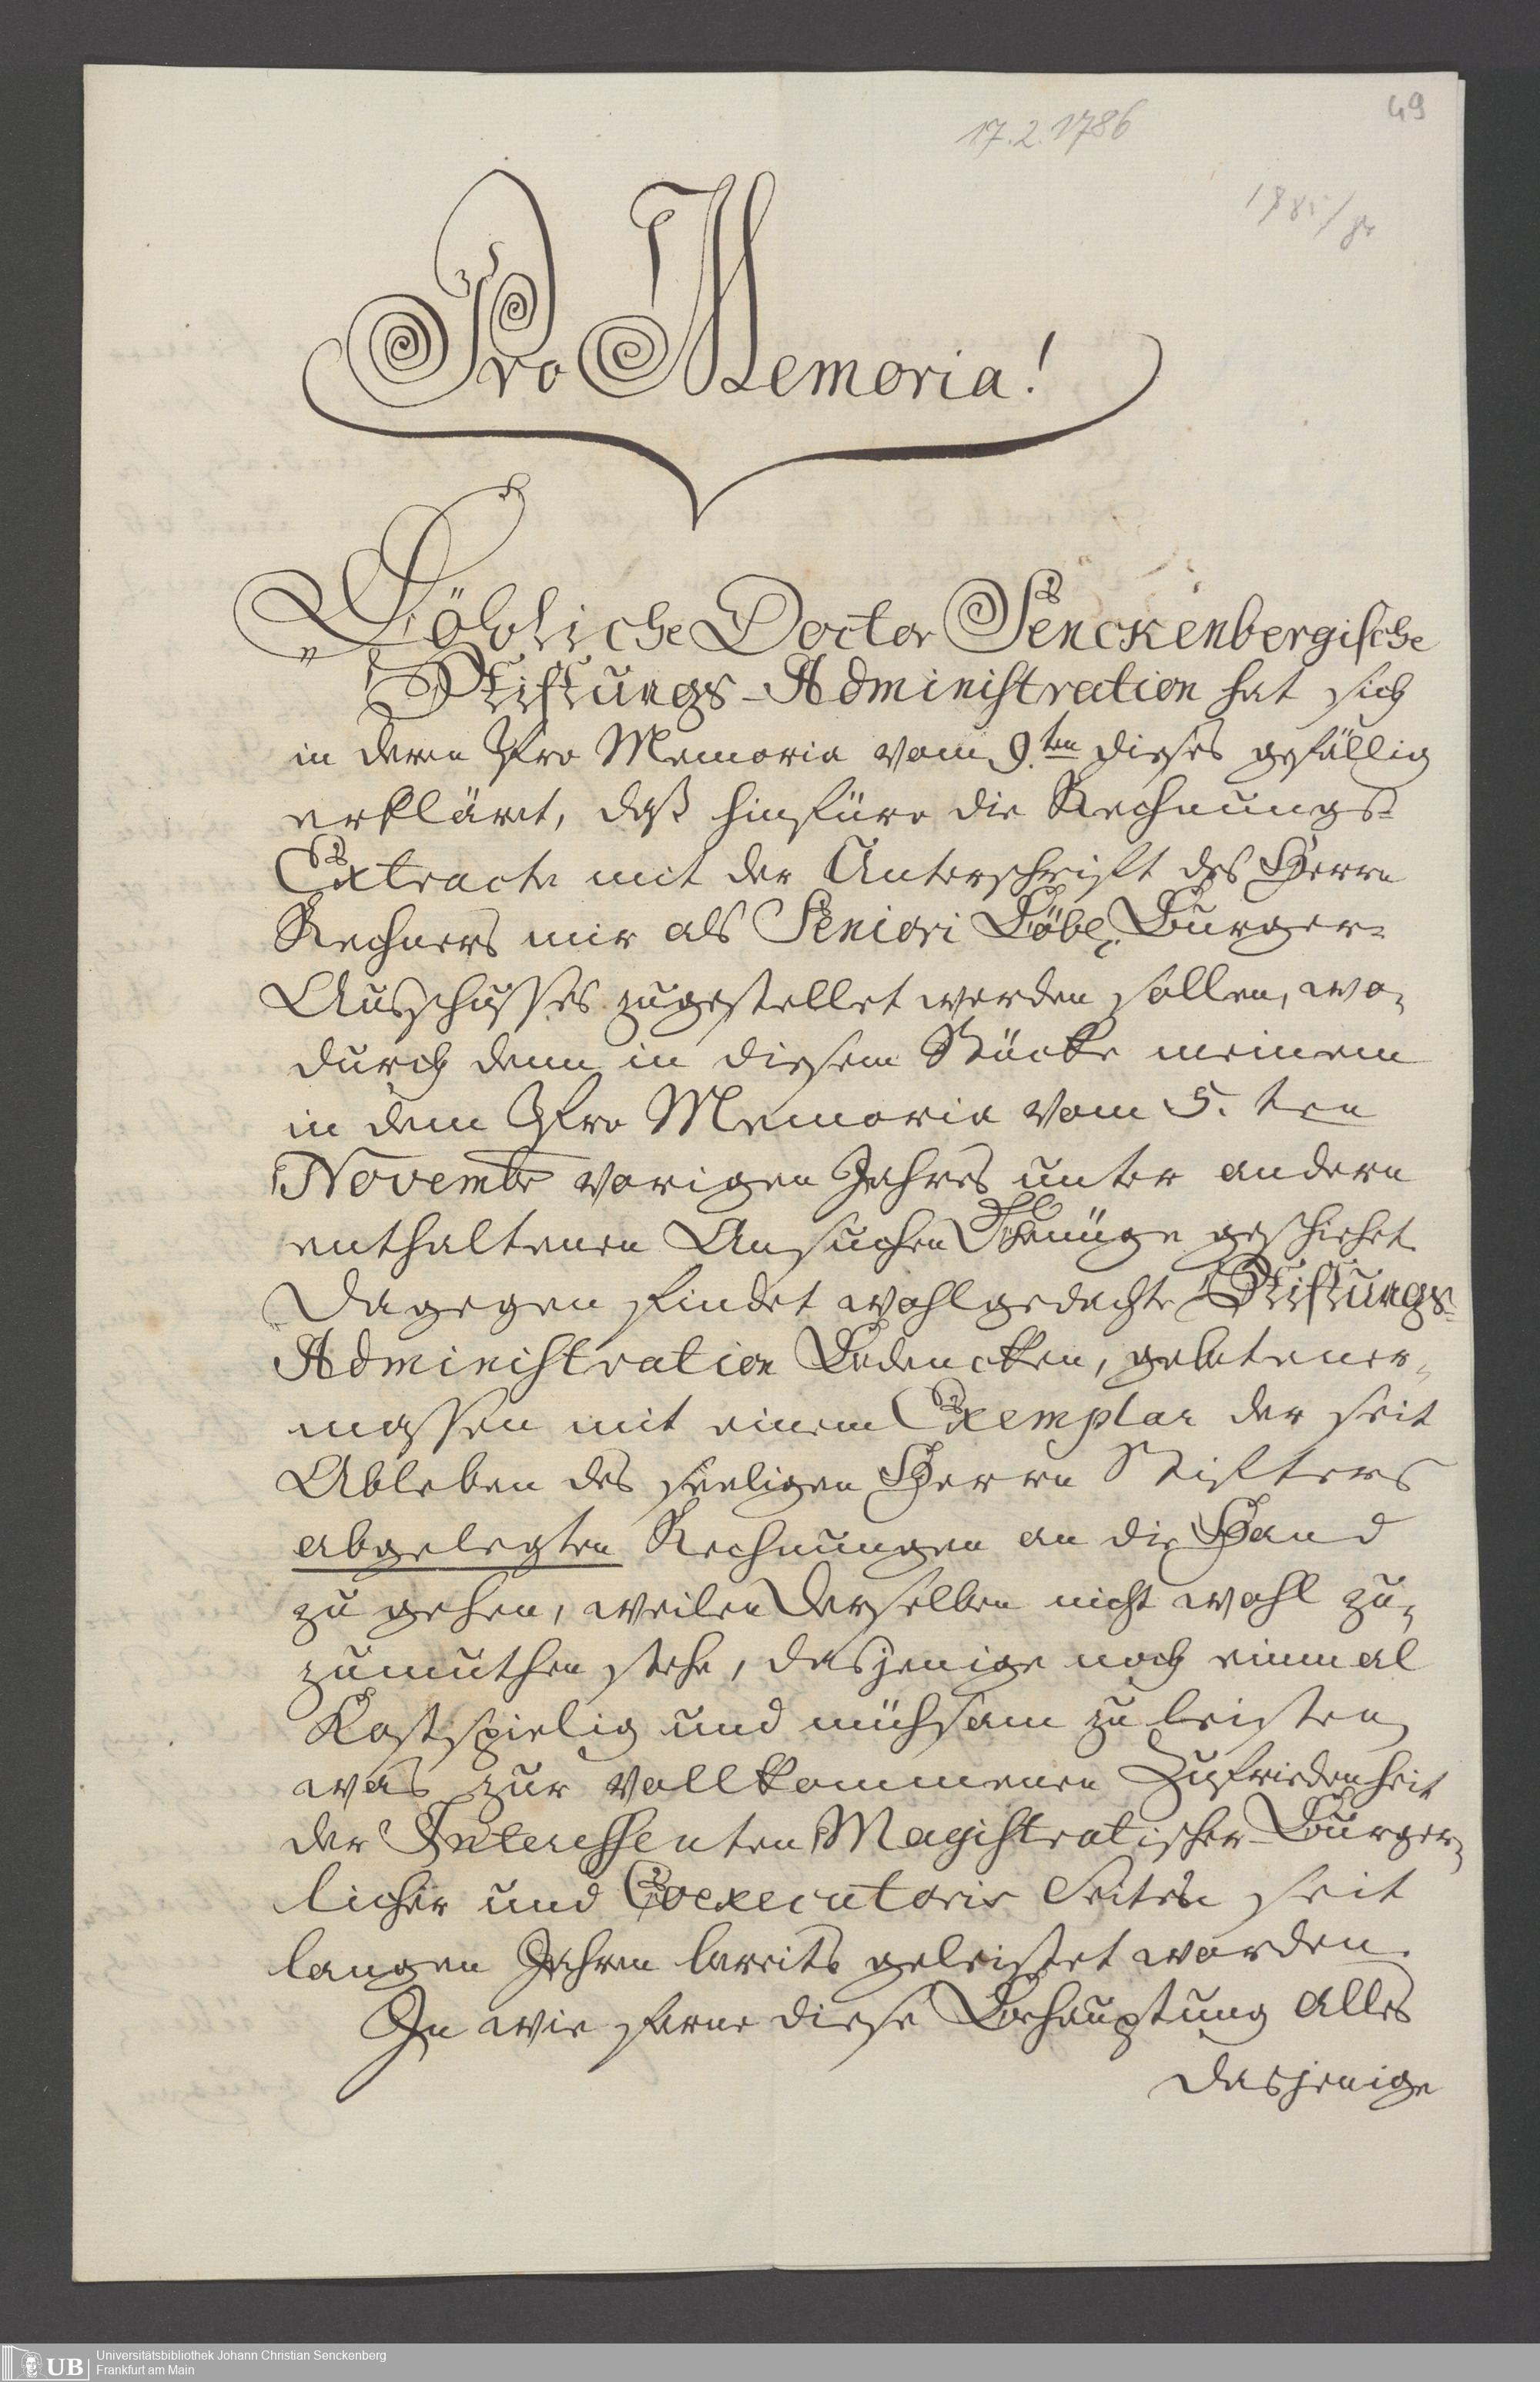 49
17.2.1786
Pro Memoria!
Löbliche Doctor Senckenbergische
Stiftungs-Administration hat sich
in deren Pro Memoria vom 9.ten dieses gefällig
erkläret, daß hinführo die Rechnungs-
Extracte mit der Unterschrift des Herrn
Rechners mir als Seniori Löbl. Burger-
Ausschusses zugestellet werden sollen, wo-
durch denn in diesem Stücke meinem
in dem Pro Memoria vom 5.ten
Novembr vorigen Jahres unter andern
enthaltenen Ansuchen Genüge geschiehet.
Dagegen findet wohlgedachte Stiftungs-
Administration Bedencken, gebetener-
massen mit einem Exemplar der seit
Ableben des seeligen Herrn Stifters
abgelegten Rechnungen an die Hand
zu gehen, weilen Derselben nicht wohl zu-
zumuthen stehe, dasjenige noch einmal
Kostspielig und mühsam zu leisten,
was zur vollkommenen Zufriedenheit
der Interessenten Magistratischer-Burger-
licher und Coexecutoris Seiten seit
langen Jahren bereits geleistet worden.
In wie ferne diese Behauptung alles
dasjenige
UB
Universitätsbibliothek Johann Christian Senckenberg
Frankfurt am Main